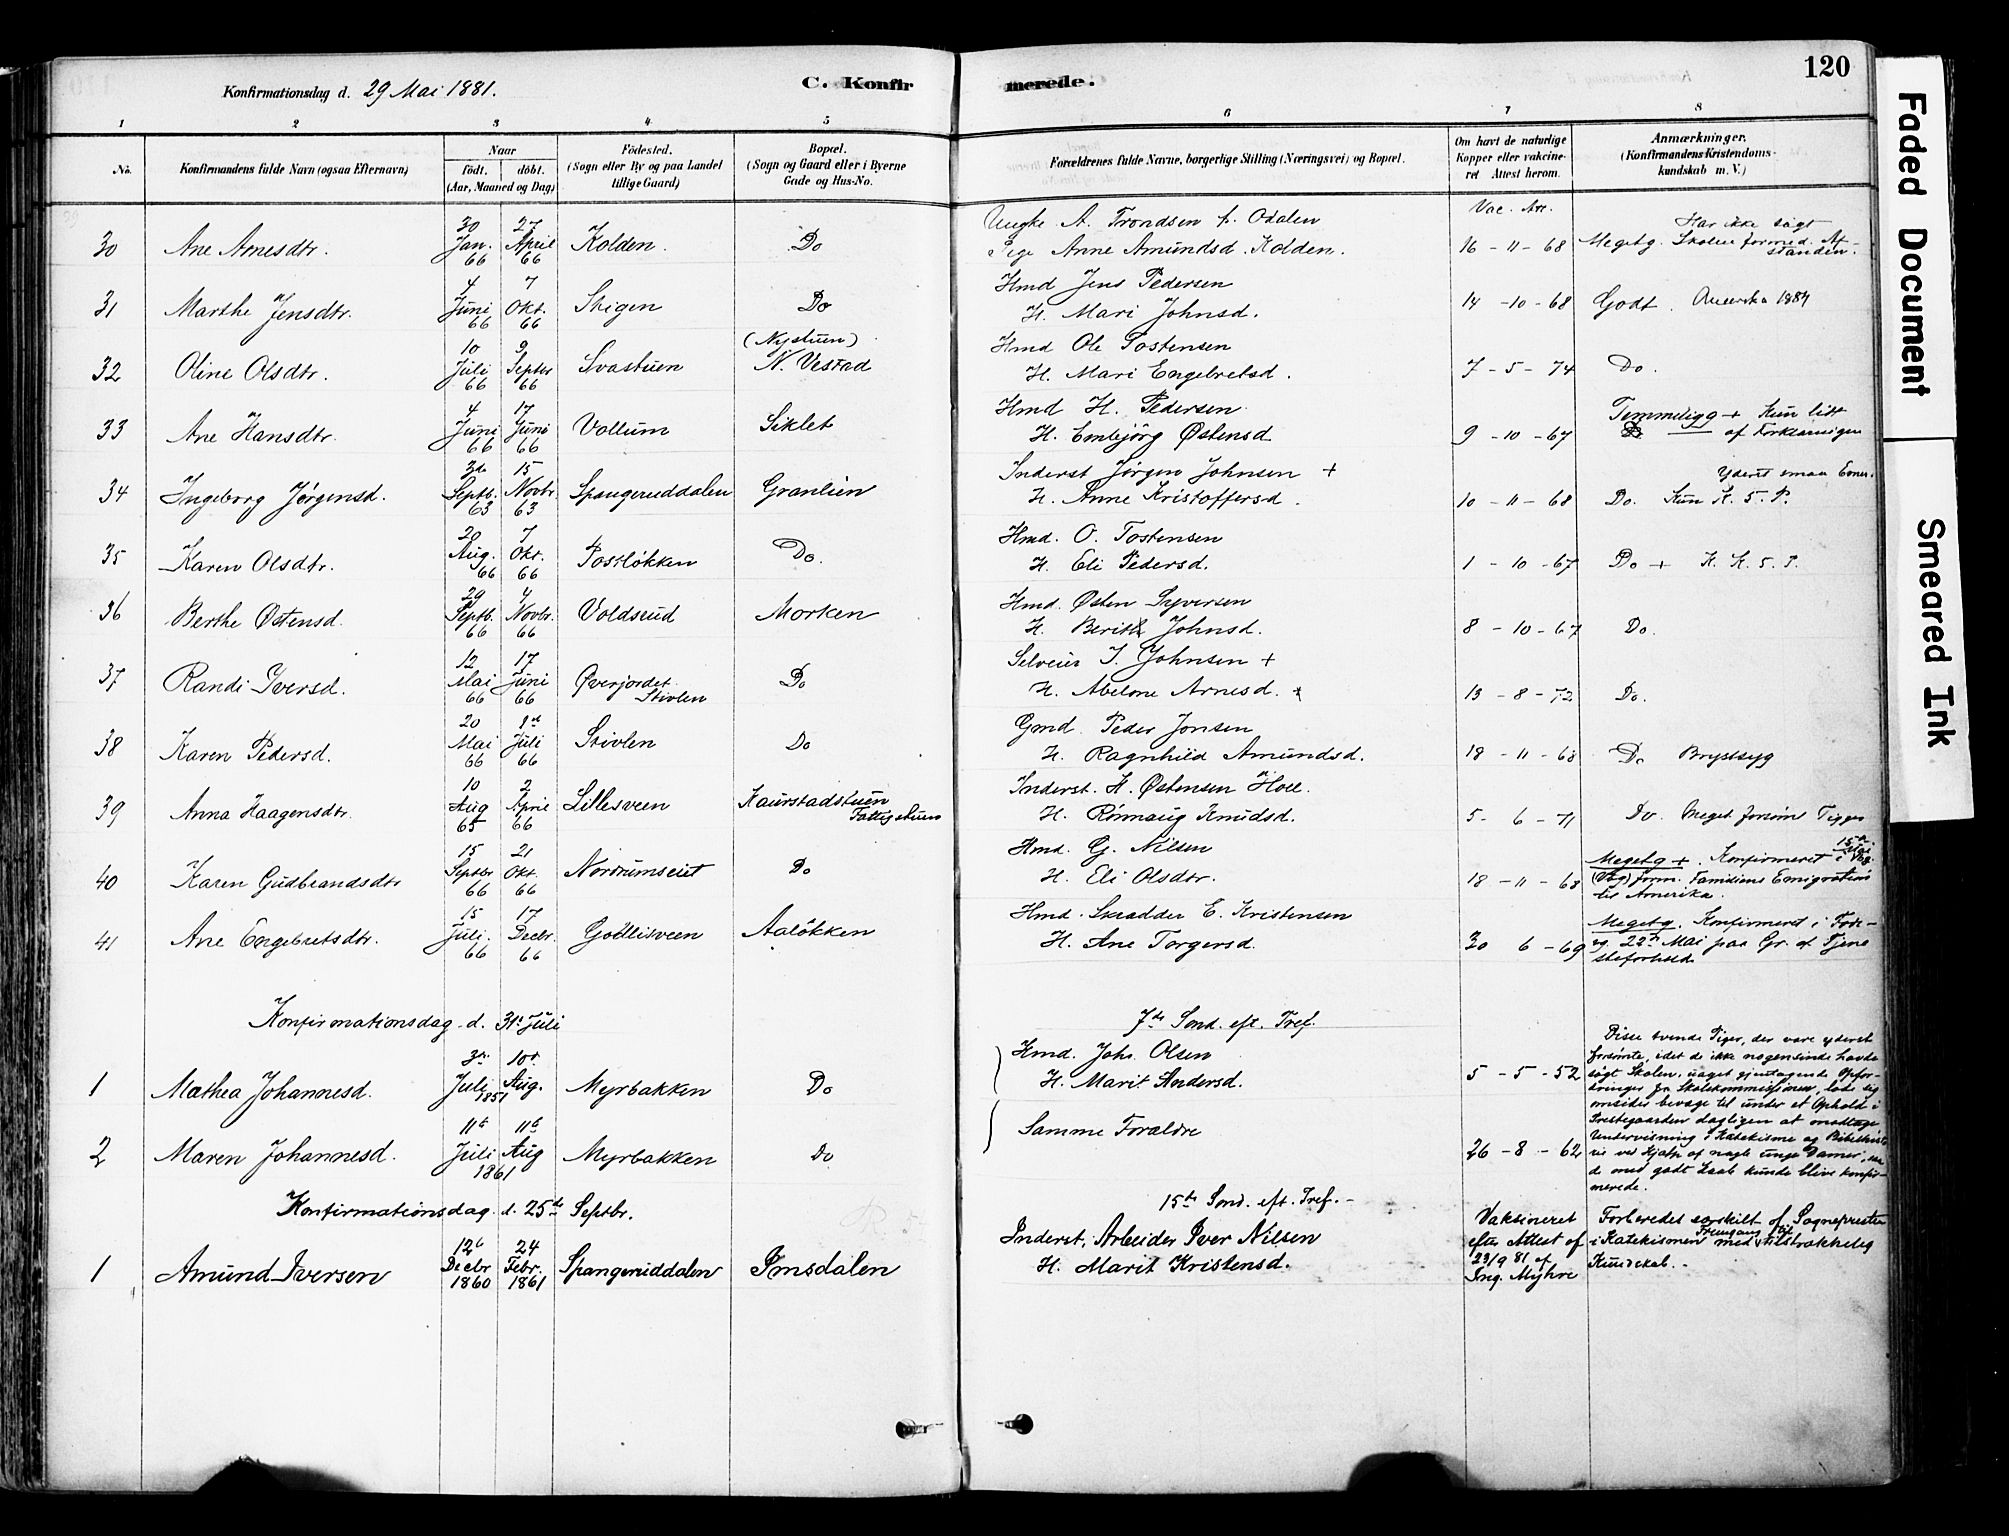 Konfirmationsdag d. 29 Mai 1881.
C. Konfir
merede.
120
1 2 3 4 5 6 7 8
No.
Konfirmandens fulde Navn (ogsaa Efternavn)
Naar
födt. döbt.
(Aar, Maaned og Dag)
Födested.
(Sogn eller By og paa Landet
tillige Gaard)
Bopæl.
(Sogn og Gaard eller i Byerne
Gade og Hus-No.
Forældrenes fulde Navne, borgerlige Stilling (Næringsvei) og Bopæl.
Om havt de naturlige
Kopper eller vakcine-
ret Attest herom.
Anmærkninger.
(Konfirmandens Kristendoms-
kundskab m. V.)
Vac. Att.
30 Ane Arnesdtr. 30 Jan. 66 27 April 66 Kolden. Do
Ungke A. Trondsen f. Odalen
Pige Anne Amundsd. Kolden.
16-11-68
Har ikke søgt
Megetg. Skolen formed. Af-
standen.
31 Marthe Jensdtr. 4 Juni 66 7 Okt. 66 Stigen Do
Hmd Jens Pedersen
H. Mari Johnsd.
14-10-68 Godt. Amerika 1884
32 Oline Olsdtr. 10 Juli 66 9 Septbr 66 Svastuen (Nystuen) N. Vestad
Hmd Ole Tostensen
H. Mari Engebretsd.
7-5-74 Do.
33 Ane Hansdtr. 4 Juni 66 17 Juni 66 Vollum Siklet
Hmd H. Pedersen
H. Embjörg Østensd
9-10-67
Temmelig g + Kun lidt
af Forklaringen
34 Ingeborg Jørgensd. 3de Septb. 63 15 Novbr 63 Spangeruddalen Granlien
Inderst Jørgen Johnsen +
H. Anne Kristoffersd.
10-11-68
Yderst smaa Evner.
Do. Kun K. 5. P.
35 Karen Olsdtr. 20 Aug. 66 7 Okt. 66 Postløkken Do.
Hmd. O. Tostensen
H. Eli Pedersd.
1-10-67 Do + K. K. 5. P.
36 Berthe Østensd. 29 Septb. 66 4 Novbr. 66 Voldsrud Morken
Hmd. Østen Syversen
H. Berith Johnsd.
8-10-67 Do.
37 Randi Iversd. 12 Mai 66 17 Juni 66 Øverjordet Stivlen Do
Selveier I. Johnsen +
H. Abelone Arnesd. +
13-8-72 Do.
38 Karen Pedersd. 20 Mai 66 1st Juli 66 Stivlen Do
Gmd. Peder Jonsen
H. Ragnhild Amundsd.
18-11-68 Do Brystsyg
39 Anna Haagensdtr. 10 Aug 65 2 April 66 Lillesveen Kaurstadstuen
Inderst. H. Østensen Hoel
H. Rønnaug Knudsd.
5-6-71 Do. Meget forsömt Tigger
40 Karen Gudbrandsdtr 15 Septbr 66 21 Okt. 66 Nordrumseiet Do
Hmd. G. Nilsen
H. Eli Olsdtr.
18-11-68
15de Mai
Megetg +. Konfirmeret i
form. Familiens Emigration
til Amerika.
41 Ane Engebretsdtr. 15 Juli. 66 17 Decbr. 66 Götlisveen Aaløkken
Hmd. Skrædder E. Kristensen
H. Ane Torgersd.
30 6-69
Megetg. Konfirmeret i
22de Mai paa Gr. af Tjene
steforhold
Konfirmationsdag d. 31te Juli
7de Sond. eft. Tref.
1 Mathea Johannesd. 3die Juli 1851 10de Aug. Myrbakken Do
Hmd. Joh. Olsen
H. Marit Andersd.
5-5-52
2 Maren Johannesd. 11te Juli 11te Aug 1861 Myrbakken Do
Samme Forældre
26-8-62
Disse tvende Piger, der vare yderst
forsømte, idet de ikke nogensinde havde
søgt Skolen, uaget gjentagende Opfor-
dringer fra Skolekommissionen, lode sig
omsider bevæge til under et Ophold i
Prestegaarden dagligen at modtage
Undervisning i Katekisme og Bibelhisto
rie ved Hjælp af nogle unge Damer, saa
de med godt Laab kunde blive konfir-
merede.
Konfirmationsdag d. 25de Septbr.
15de Sond. eft. Tref.
1 Amund Iversen 12te Decbr 1860 24 Febr. 1861 Spangeruddalen Imsdalen
Inderst, Arbeider Iver Nilsen
H. Marit Kristensd.
Vaksineret
efter Attest af
23/9 81 af
Ing. Myhre
Forberedet særskilt af Sognepresten
i Katekismen med tilstrækkelig
Kundskab.
Faded Document
Smeared Ink